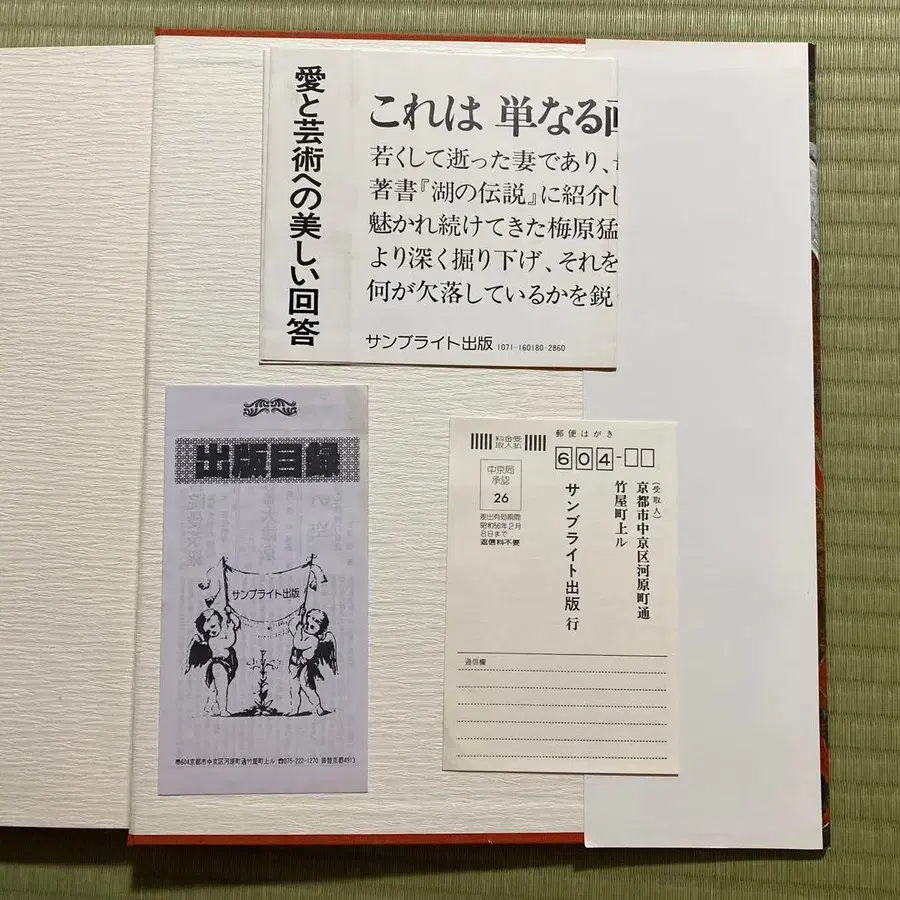 愛と芸術への美しい回答
これは 単なる
若くして逝った妻であり、
著書『湖の伝説』に紹介し
魅かれ続けてきた梅原猛
より深く掘り下げ、それを
何が欠落しているかを鋭
サンブライト出版 1071-160180-2860
出版目録
サンブライト出版
〒604京都市中京区河原町通竹屋町上ル ☎075-222-1270 振替京都4913
郵便はがき
料金受
取人払
604-
中京局
承認
26
差出有効期間
昭和56年2月
8日まで
返信料不要
(受取人)
京都市中京区河原町通
竹屋町上ル
サンブライト出版 行
通信欄